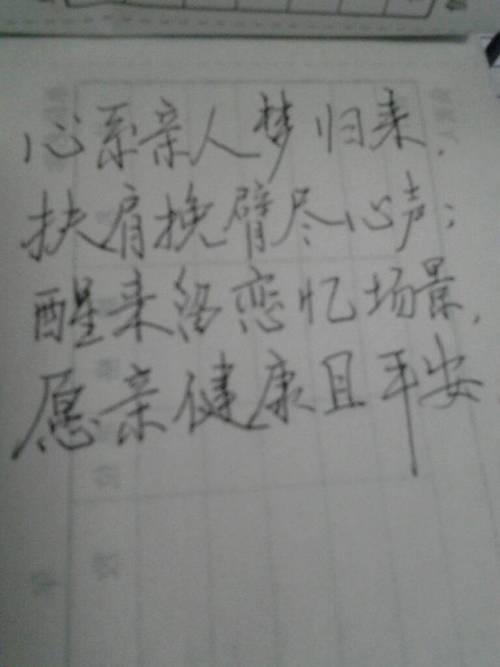 心系亲人梦归来，
扶肩挽臂尽心声；
醒来留恋忆场景，
愿亲健康且平安